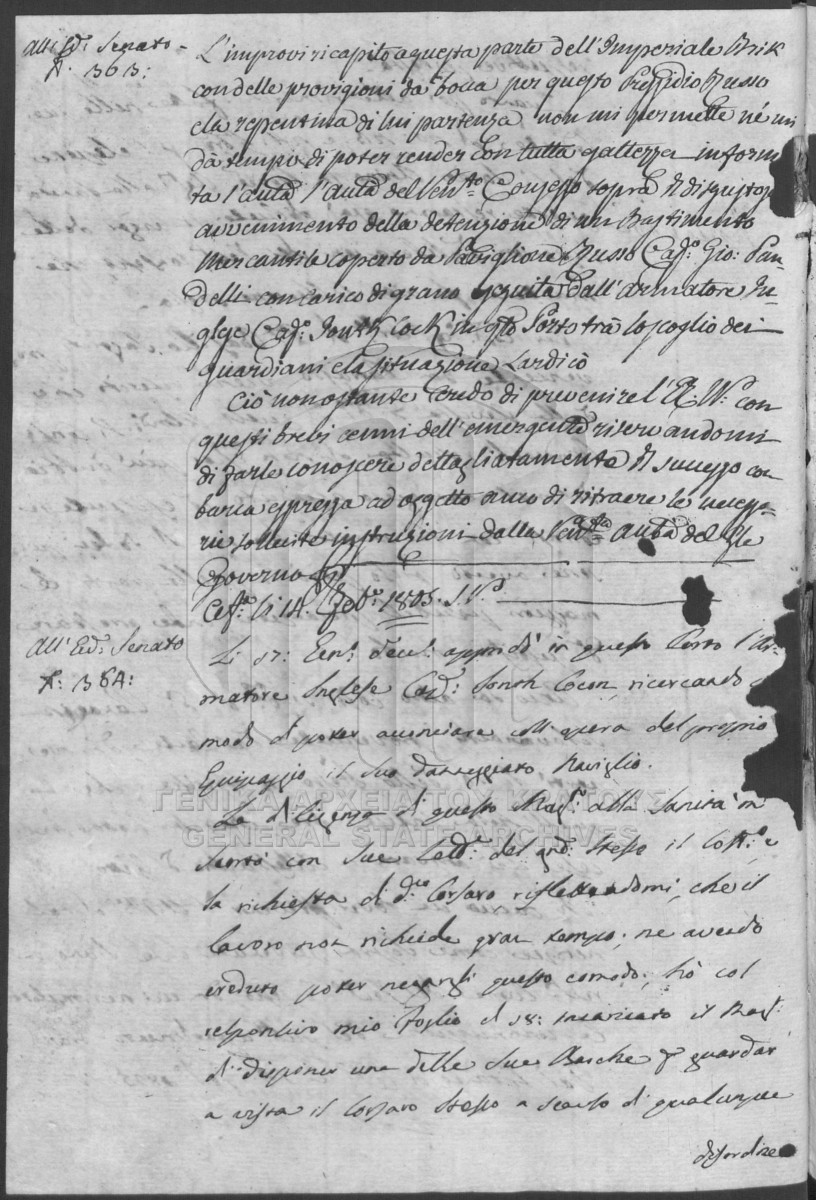 All' Ecc.º Senato
N. 363:
L'improvi ricapito a questa parte dell'Imperiale Brik
con delle provigioni da bocca per questo Pressidio Russo
e la repentina di lui partenza non mi permette né mi
dà tempo di poter render con tutta esattezza informa
ta l'autà l'autà del Ven.to Consesso sopra il disgustoso
avvenimento della detenzione di un Bastimento
Mercantile coperto da Paviglione Russo Cap.º Gio: Pan-
delli con carico di grano seguita dall'armatore In-
glese Cap.º Jonth Cock in q.to Porto trà lo scoglio dei
guardiani e la situazione Lardicò
Ciò nonostante credo di prevenire l' con
questi brevi cenni dell'emergente riservandomi
di farle conoscere dettagliatamente il successo con
barca espressa ad oggetto anco di ritraere le necessa-
rie sollecite instruzioni dalla Ven.ta autà del Gle
Governo
Cef.ª li 14. Feb.º 1805. S.V.
All' Ecc.º Senato
N: 364:
Li 17: approdò in questo Porto l'Ar-
matore Inglese Cap.º Jonth Cocon, ricercando
modo di poter acconciare coll'opera del proprio
Equipaggio il suo danneggiato Naviglio.
ΓΕΝΙΚΑ ΑΡΧΕΙΑ ΤΟΥ ΚΡΑΤΟΥΣ
La diligenza di questo Mag.º alla Sanità m
GENERAL STATE ARCHIVES
sentò con sue del stesso il Cost.º e
la richiesta di d.to Corsaro riflettendomi, che il
lavoro non richiede gran tempo; ne avendo
creduto poter negargli questo comodo; hò col
responsivo mio Foglio di 18: incaricato il Mag.:
di disponer una delle sue Barche p guardar
a vista il Corsaro stesso a scanso di qualunque
disordine